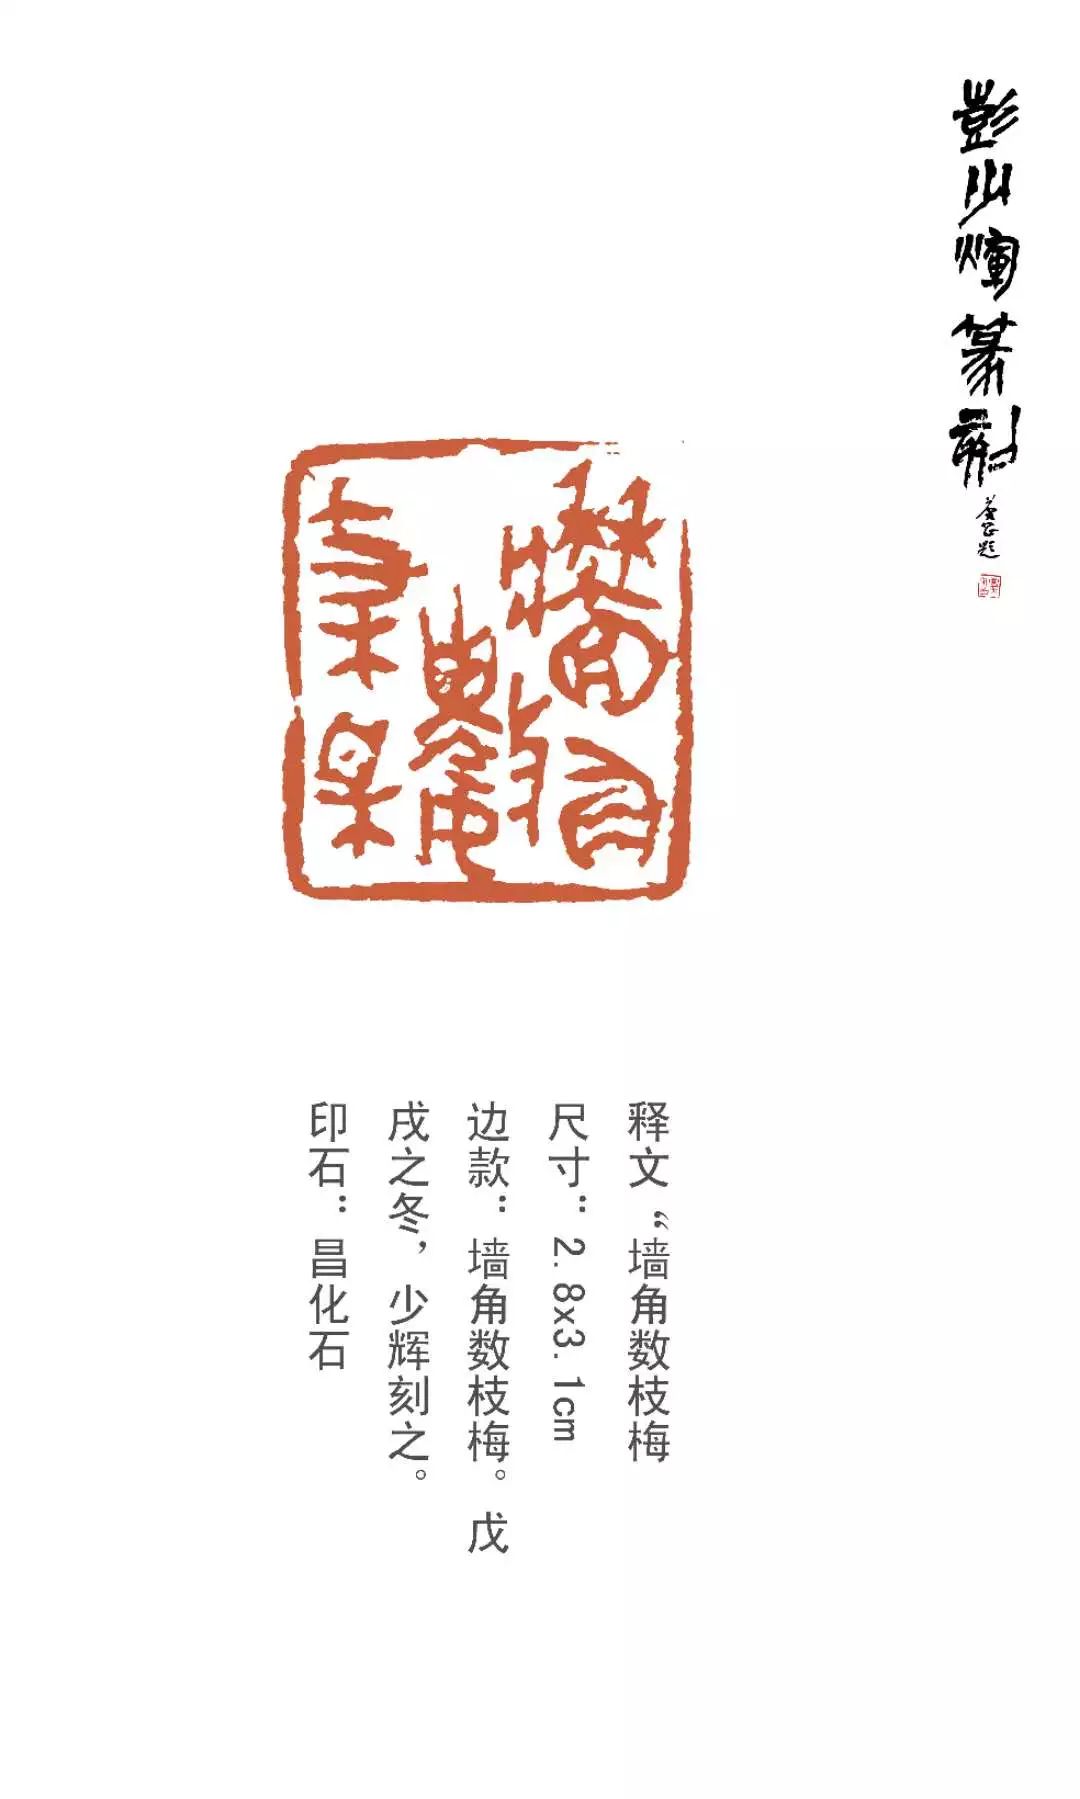 彭少辉篆刻
墙角数枝梅
释文“墙角数枝梅
尺寸：2.8x3.1cm
边款：墙角数枝梅。戊
戌之冬，少辉刻之。
印石：昌化石